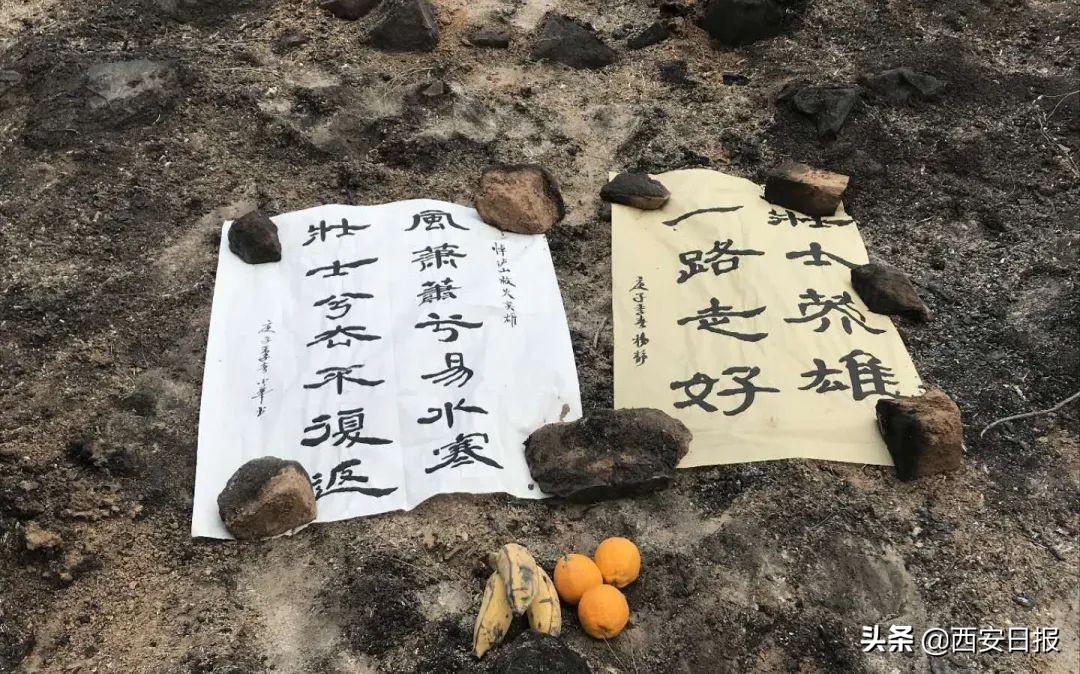 悼泸山救火英雄
風蕭蕭兮易水寒
壯士兮去不復返
庚子季春小華书
壯士英雄
一路走好
庚子季春杨静
头条 @西安日报